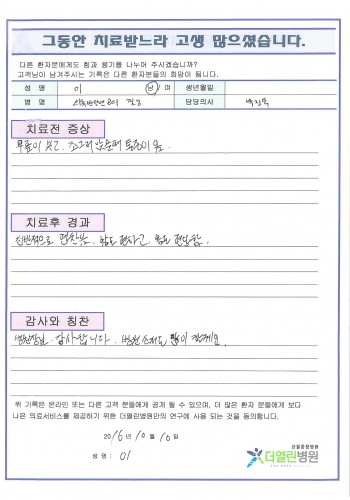 그동안 치료받느라 고생 많으셨습니다.
다른 환자분에게도 힘과 용기를 나누어 주시겠습니까?
고객님이 남겨주시는 기록은 다른 환자분들의 희망이 됩니다.
성 명 이 남/여 생년월일
병 명 담당의사
치료전 증상
무릎이 붓고, 쪼그려 앉을때 통증이 옴.
치료후 경과
전반적으로
감사와 칭찬
병원장님. 감사합니다. 병원 소개도 많이 할게요.
위 기록은 온라인 또는 다른 고객 분들에게 공개 될 수 있으며, 더 많은 환자 분들에게 보다
나은 의료서비스를 제공하기 위한 더열린병원만의 연구에 사용 되는 것을 동의합니다.
2016년 10월 10일
성 명 : 이
관절중점병원
더열린병원